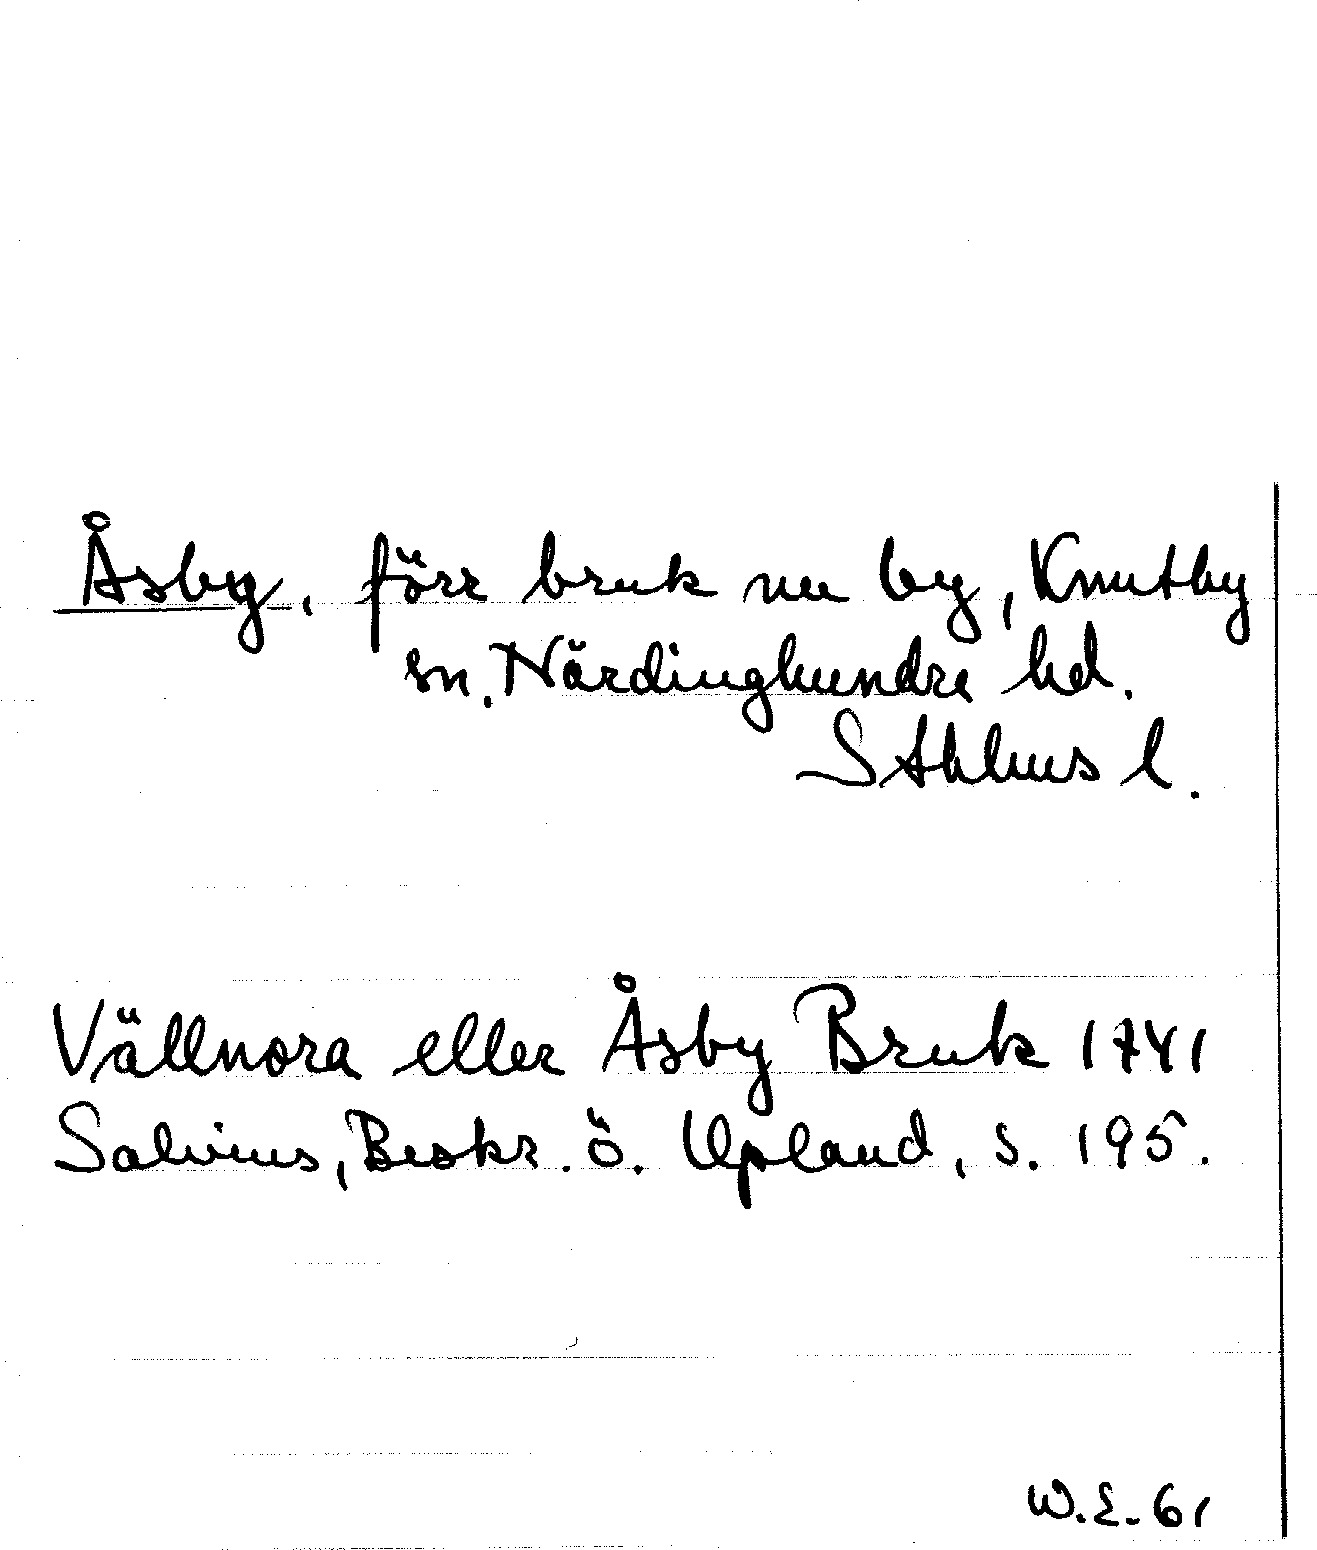 Åsby, förr bruk nu by, Knutby
sn. Närdinghundra hd.
Sthlms l.
Vällnora eller Åsby Bruk 1741
Salvius, Beskr. ö. Upland, s. 195.
W.E. 61